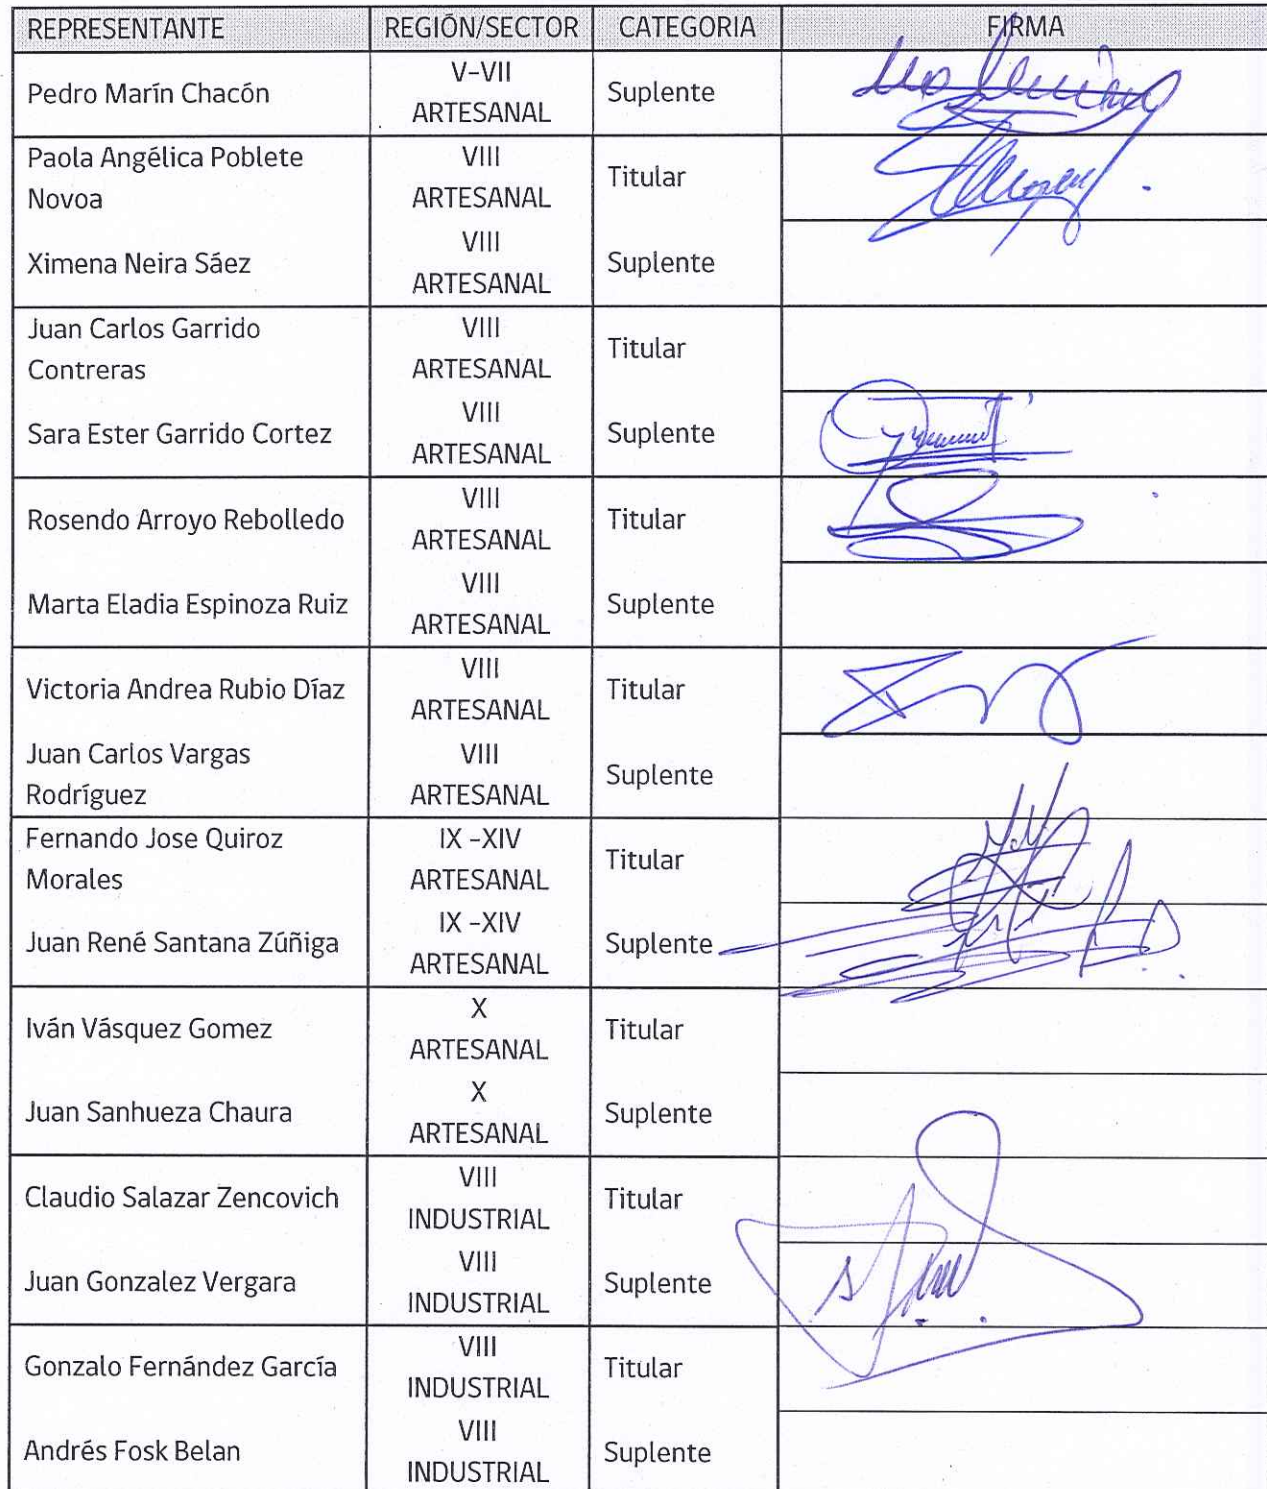 REPRESENTANTE REGIÓN/SECTOR CATEGORIA FIRMA
Pedro Marín Chacón V-VII ARTESANAL Suplente
Paola Angélica Poblete Novoa VIII ARTESANAL Titular
Ximena Neira Sáez VIII ARTESANAL Suplente
Juan Carlos Garrido Contreras VIII ARTESANAL Titular
Sara Ester Garrido Cortez VIII ARTESANAL Suplente
Rosendo Arroyo Rebolledo VIII ARTESANAL Titular
Marta Eladia Espinoza Ruiz VIII ARTESANAL Suplente
Victoria Andrea Rubio Díaz VIII ARTESANAL Titular
Juan Carlos Vargas Rodríguez VIII ARTESANAL Suplente
Fernando Jose Quiroz Morales IX -XIV ARTESANAL Titular
Juan René Santana Zúñiga IX -XIV ARTESANAL Suplente
Iván Vásquez Gomez X ARTESANAL Titular
Juan Sanhueza Chaura X ARTESANAL Suplente
Claudio Salazar Zencovich VIII INDUSTRIAL Titular
Juan Gonzalez Vergara VIII INDUSTRIAL Suplente
Gonzalo Fernández García VIII INDUSTRIAL Titular
Andrés Fosk Belan VIII INDUSTRIAL Suplente